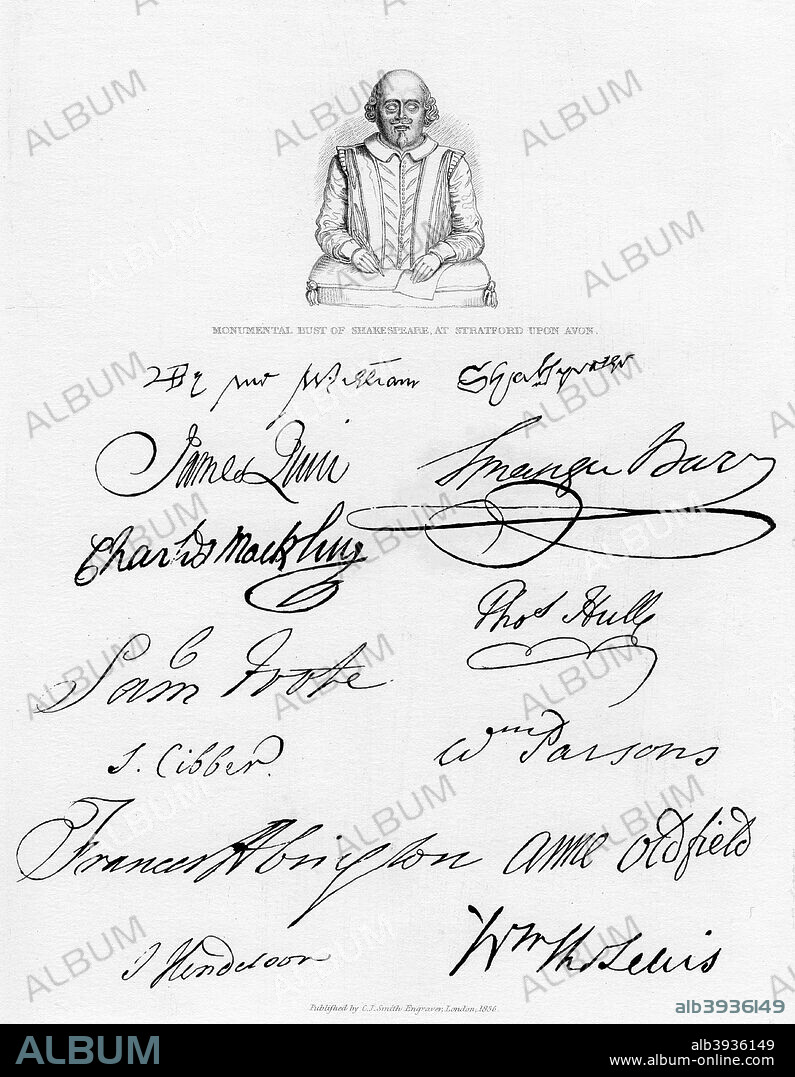 MONUMENTAL BUST OF SHAKESPEARE, AT STRATFORD UPON AVON.
By me William Shakspeare
James Quin
Spranger Barry
Charles Macklin
Thos Hull
Sam Foote
S. Cibber.
Wm Parsons
Frances Abington
Anne Oldfield
J Henderson
Wm Thos Lewis
Published by C.J. Smith Engraver, London, 1836.
alb3936149
ALBUM
alb3936149
www.album-online.com